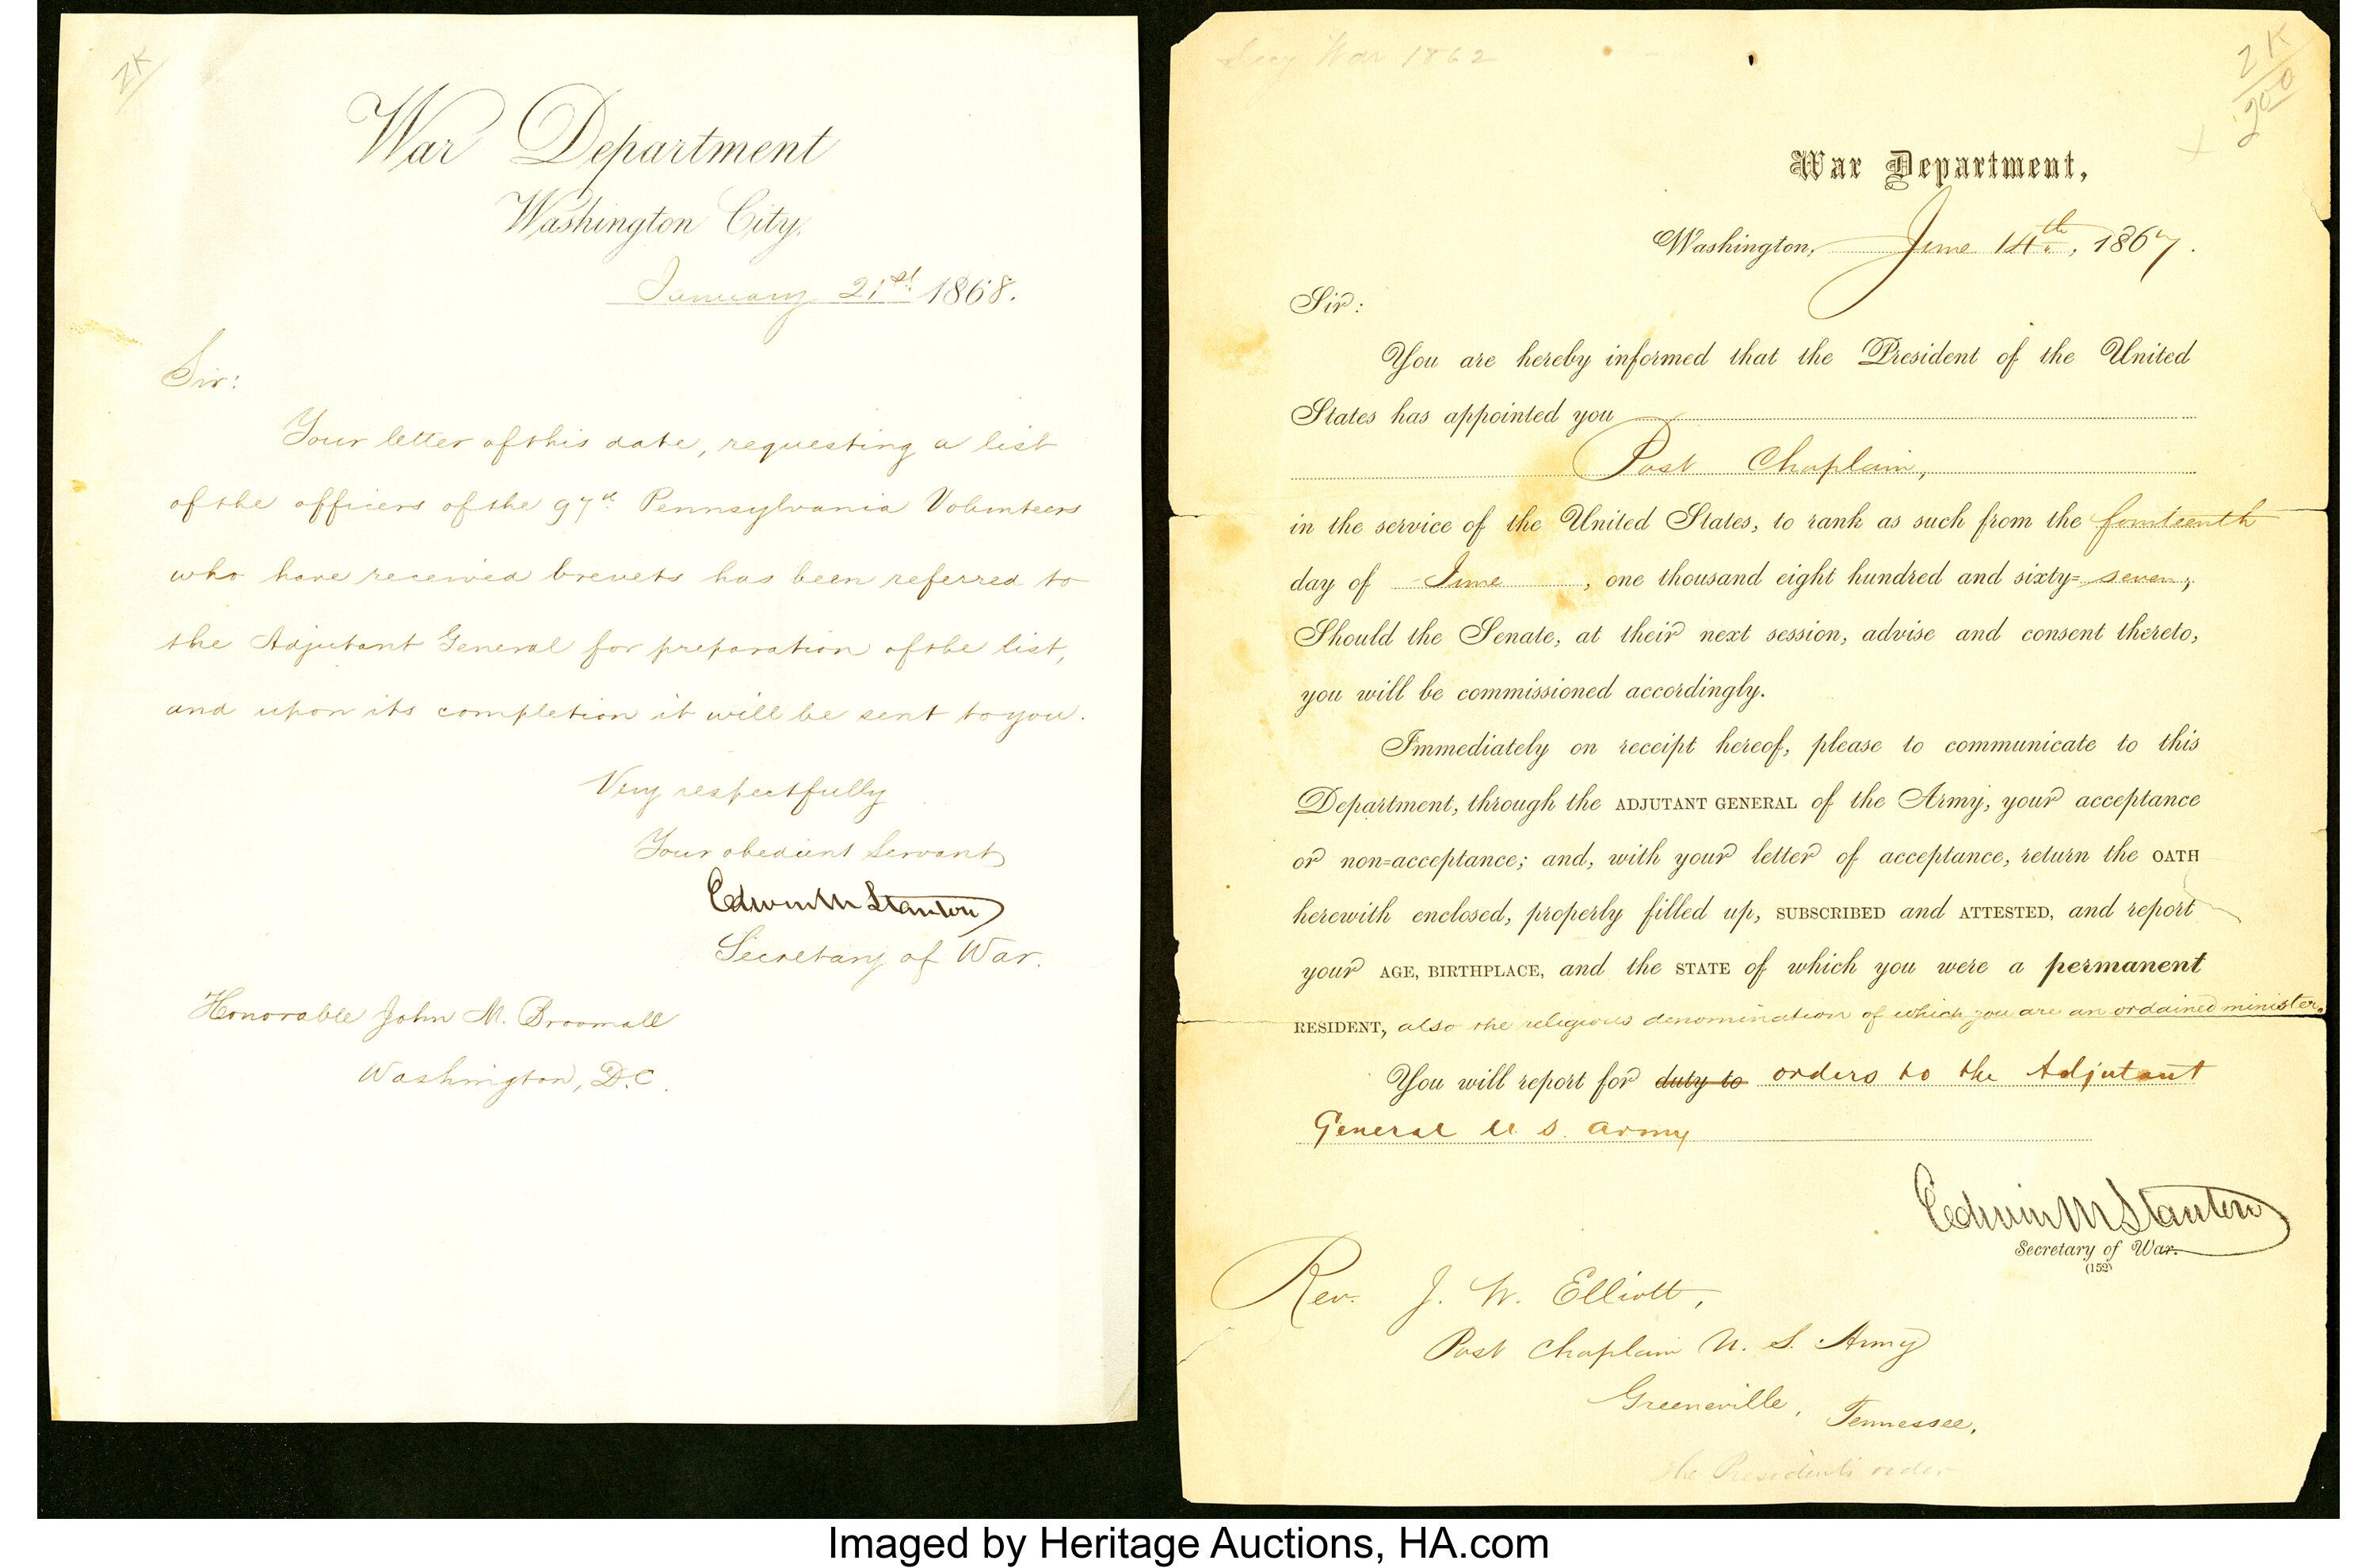 2K
War Department
Washington City.
January 21st 1868.
Sir:
Your letter of this date, requesting a list
of the officers of the 97th Pennsylvania Volunteers
who have received brevets has been referred to
the Adjutant General for preparation of the list,
and upon its completion it will be sent to you.
Very respectfully
Your obedient servant
Edwin M Stanton
Secretary of War.
Honorable John M. Broomall
Washington, D.C.
Secy War 1862
2K
200
War Department,
Washington, June 14th, 1867.
Sir:
You are hereby informed that the President of the United
States has appointed you
Post Chaplain,
in the service of the United States, to rank as such from the fourteenth
day of June, one thousand eight hundred and sixty=seven,
Should the Senate, at their next session, advise and consent thereto,
you will be commissioned accordingly.
Immediately on receipt hereof, please to communicate to this
Department, through the ADJUTANT GENERAL of the Army, your acceptance
or non=acceptance; and, with your letter of acceptance, return the OATH
herewith enclosed, properly filled up, SUBSCRIBED and ATTESTED, and report
your AGE, BIRTHPLACE, and the STATE of which you were a permanent
RESIDENT, also the religious denomination of which you are an ordained minister.
You will report for duty to orders to the Adjutant
General U. S. Army
Edwin M Stanton
Secretary of War.
(152)
Rev. J. W. Elliott,
Post Chaplain U. S. Army
Greeneville, Tennessee.
The Presidents order
Imaged by Heritage Auctions, HA.com